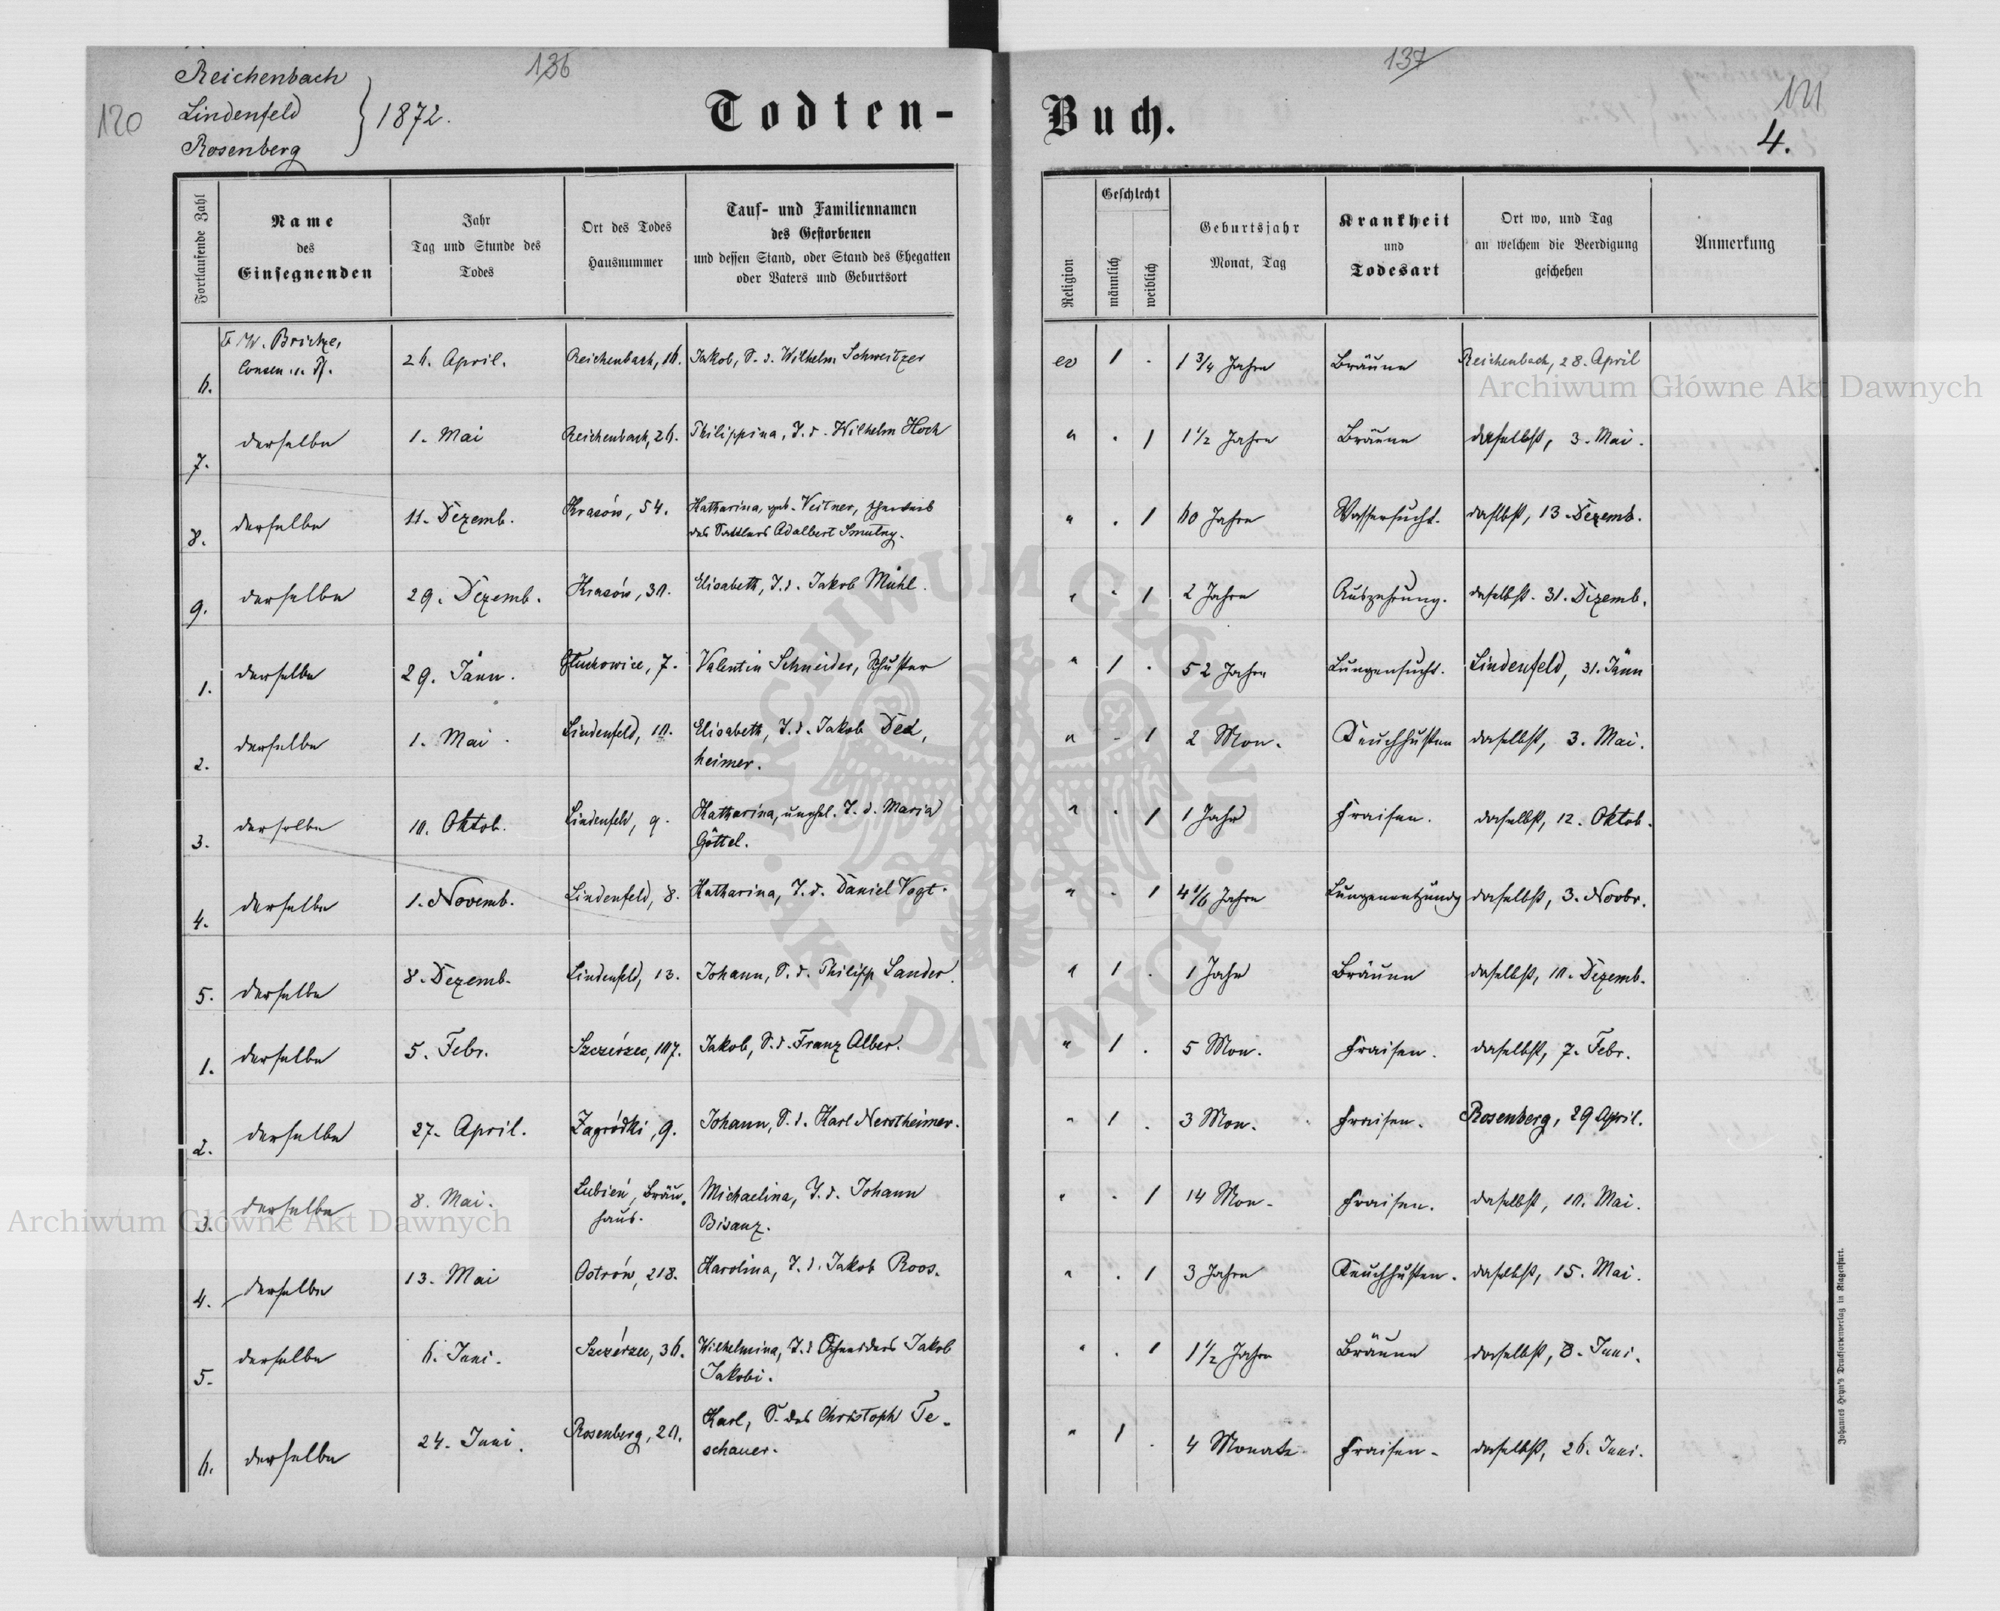 Reichenbach
Lindenfeld
Rosenberg
1872.
120
136
137
121
4.
Todten-Buch.
Fortlaufende Zahl
Name
des
Einsegnenden
Jahr
Tag und Stunde des
Todes
Ort des Todes
Hausnummer
Tauf- und Familiennamen
des Gestorbenen
und dessen Stand, oder Stand des Ehegatten
oder Vaters und Geburtsort
Religion
Geschlecht
männlich
weiblich
Geburtsjahr
Monat, Tag
Krankheit
und
Todesart
Ort wo, und Tag
an welchem die Beerdigung
geschehen
Anmerkung
6. 26. April. Reichenbach, 16. Jakob, S. d. Wilhelm Schweitzer ev 1 . 1 3/4 Jahre Bräune Reichenbach, 28. April
7. derselbe 1. Mai Reichenbach, 26. Philippina, T. d. Wilhelm Hoch " . 1 1 1/2 Jahre Bräune daselbst, 3. Mai.
8. derselbe 11. Dezemb. Krasów, 54. Katharina, geb. Veitner, Eheweib
des Sattlers Adalbert Smutny. " . 1 60 Jahre Wassersucht. daselbst, 13. Dezemb.
9. derselbe 29. Dezemb. Krasów, 30. Elisabeth, T. d. Jakob Mühl. " . 1 2 Jahre Auszehrung. daselbst. 31. Dezemb.
1. derselbe 29. Jänn. 7. Valentin Schneider, Schuster " 1 . 52 Jahre Lungensucht. Lindenfeld, 31. Jänn
2. derselbe 1. Mai. Lindenfeld, 10. Elisabeth, T. d. Jakob Dex,
heimer. " . 1 2 Mon. Keuchhusten daselbst, 3. Mai.
3. derselbe 10. Oktob. Lindenfeld, 9. Katharina, unehel. T. d. Maria
Göttel. " . 1 1 Jahr Fraisen. daselbst, 12. Oktob.
4. derselbe 1. Novemb. Lindenfeld, 8. Katharina, T. d. Daniel Vogt. " . 1 4 1/6 Jahre Lungenentzündg daselbst, 3. Novbr.
5. derselbe 8. Dezemb. Lindenfeld, 13. Johann, S. d. Philipp Lander. " 1 . 1 Jahr Bräune daselbst, 10. Dezemb.
1. derselbe 5. Febr. Szczérzec, 107. Jakob, S. d. Franz Alber. " 1 . 5 Mon. Fraisen. daselbst, 7. Febr.
2. derselbe 27. April. Zagródki, 9. Johann, S. d. Karl Nerstheimer. " 1 . 3 Mon. Fraisen. Rosenberg, 29 April.
3. derselbe 8. Mai. Lubień, Bräu,
haus. Michaelina, T. d. Johann
Bisanz. " . 1 14 Mon. Fraisen. daselbst, 10. Mai.
4. derselbe 13. Mai Ostrów, 218. Karolina, T. d. Jakob Roos. " . 1 3 Jahre Keuchhusten. daselbst, 15. Mai.
5. derselbe 6. Juni. Szczérzec, 36. Wilhelmina, T. d Schneiders Jakob
Jakobi. " . 1 1 1/2 Jahre Bräune daselbst, 8. Juni.
6. derselbe 24. Juni. Rosenberg, 20. Karl, S. des Christoph Te-
schauer. " 1 . 4 Monate Fraisen. daselbst, 26. Juni.
Johannes Heyn's Drucksortenverlag in Klagenfurt.
Archiwum Główne Akt Dawnych
Archiwum Główne Akt Dawnych
ARCHIWUM GŁÓWNE AKT DAWNYCH